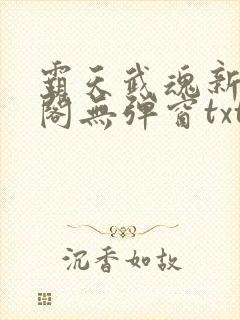 霸天武魂新
阁无弹窗txt
沉香如故